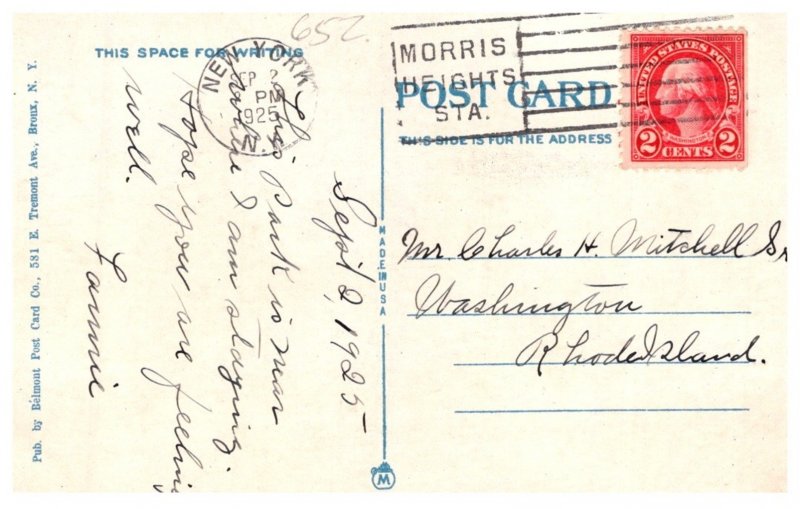 652.
THIS SPACE FOR WRITING
NEW YORK
SEP 2
PM
1925
N.Y.
MORRIS
HEIGHTS
STA.
UNITED STATES POSTAGE
WASHINGTON
2 CENTS 2
POST CARD
THIS SIDE IS FOR THE ADDRESS
Sept 2, 1925
This Park is near
where I am staying.
Hope you are feeling
well.
Fannie
MADE IN USA
M
Mr. Charles H. Mitchell Sr
Washington
Rhode Island.
Pub. by Belmont Post Card Co., 581 E. Tremont Ave., Bronx, N. Y.